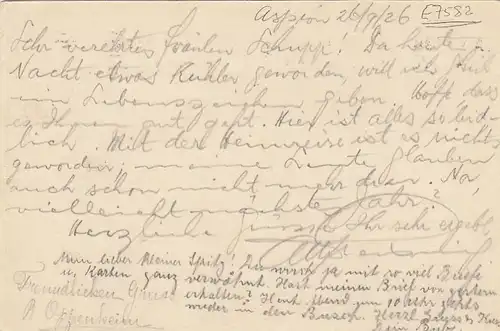 Aspion 26/9/26 E7582
Sehr verehrtes Fräulein Schuppi! Da heute
Nacht etwas kühler geworden, will ich Ihnen
ein Lebenszeichen geben. Hoffe dass
es Ihnen gut geht. Hier ist alles so leid-
lich. Mit der Heimreise ist es nichts
geworden; meine Leute glauben
auch schon nicht mehr dran. Na,
vielleicht nächstes Jahr?
Herzliche Grüsse Ihr sehr ergeb.
Mein lieber kleiner Spitz! Du wirst ja mit so viel Briefe
u. Karten ganz verwöhnt. Hast meinen Brief von gestern
Freundlichen Gruss erhalten? Heut Abend um 10 Uhr gehts
R Oppenheim wieder in den Busch. Herzl Gruss & Kuss